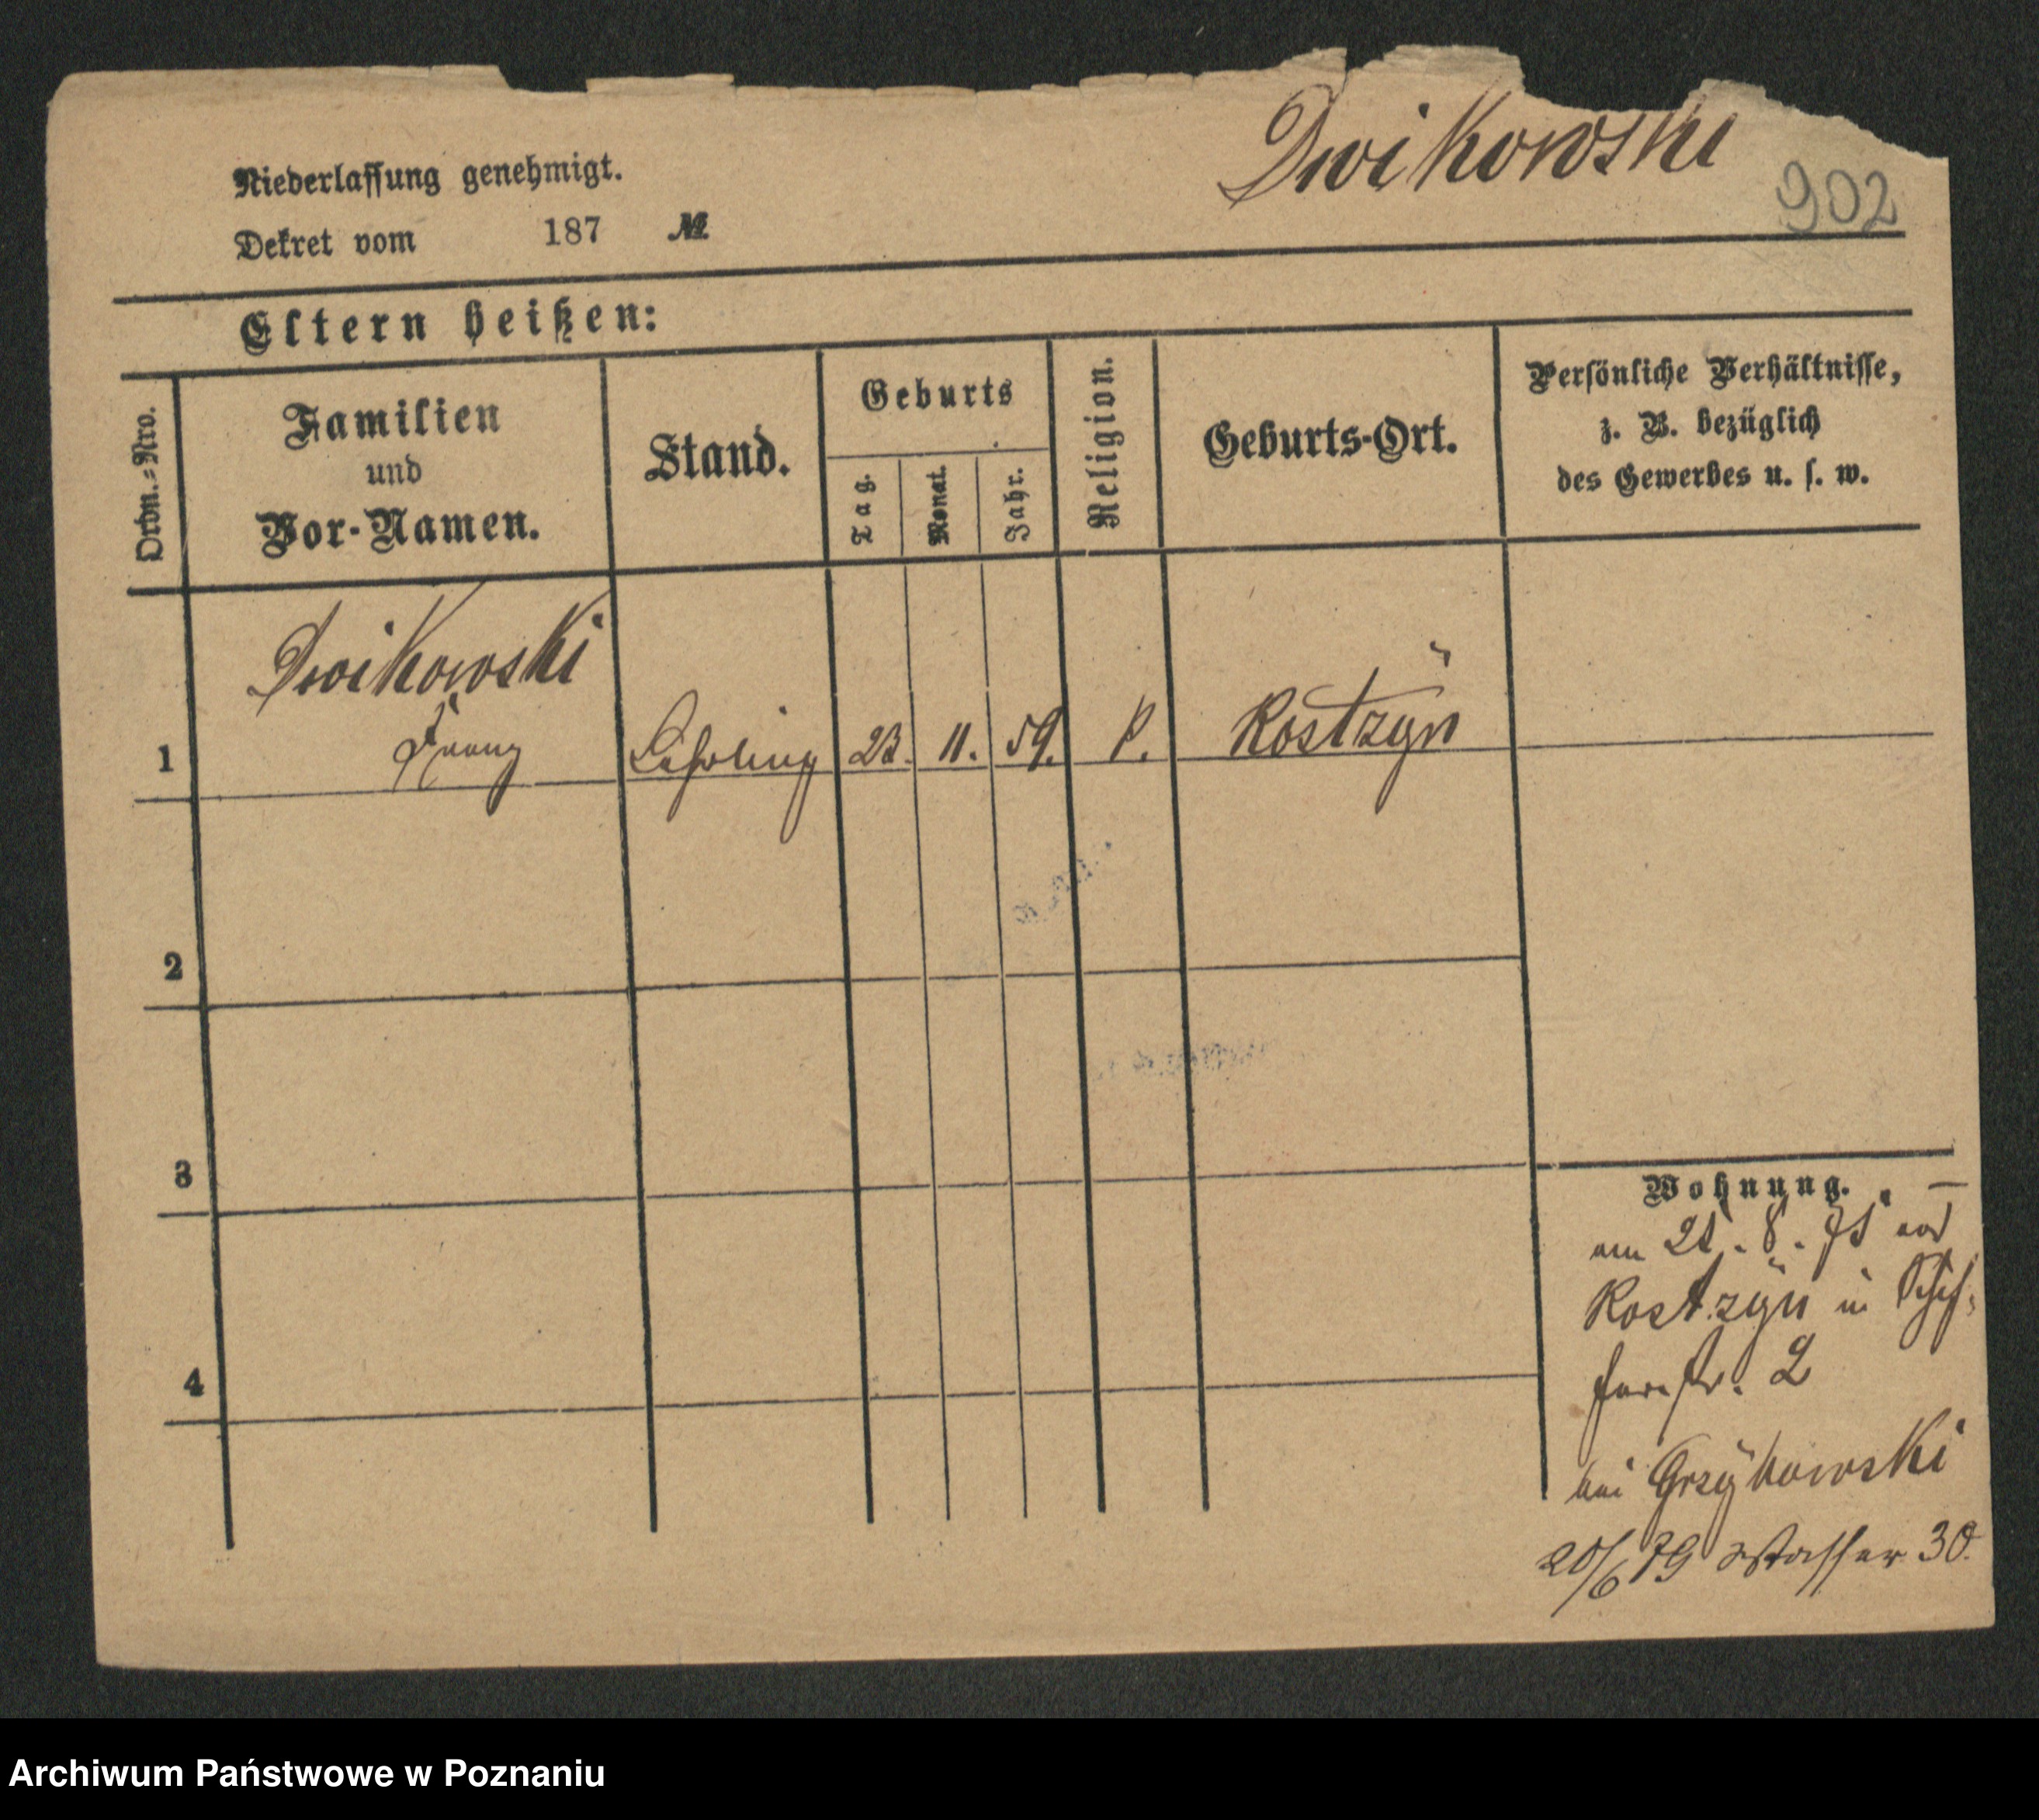 Dwikowski
902
Niederlassung genehmigt.
Dekret vom 187 №
Eltern heißen:
Ordn.=Nro.
Familien
und
Vor-Namen.
Stand.
Geburts
Tag.
Monat.
Jahr.
Religion.
Geburts-Ort.
Persönliche Verhältnisse,
z. B. bezüglich
des Gewerbes u. s. w.
Dwikowski
1 Franz Lehrling 23. 11. 59. k. Kostzyn
2
3
4
Wohnung.
am 8.
Kostzyn in
str. 2
bei Grzybowski
20/6 79 Wasser 30.
Archiwum Państwowe w Poznaniu